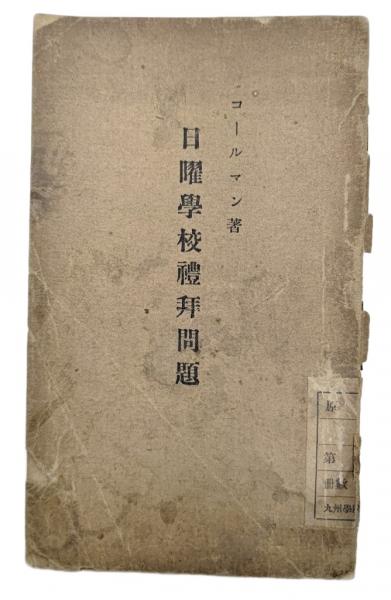 コールマン著
日曜學校禮拜問題
第
冊數
九州學